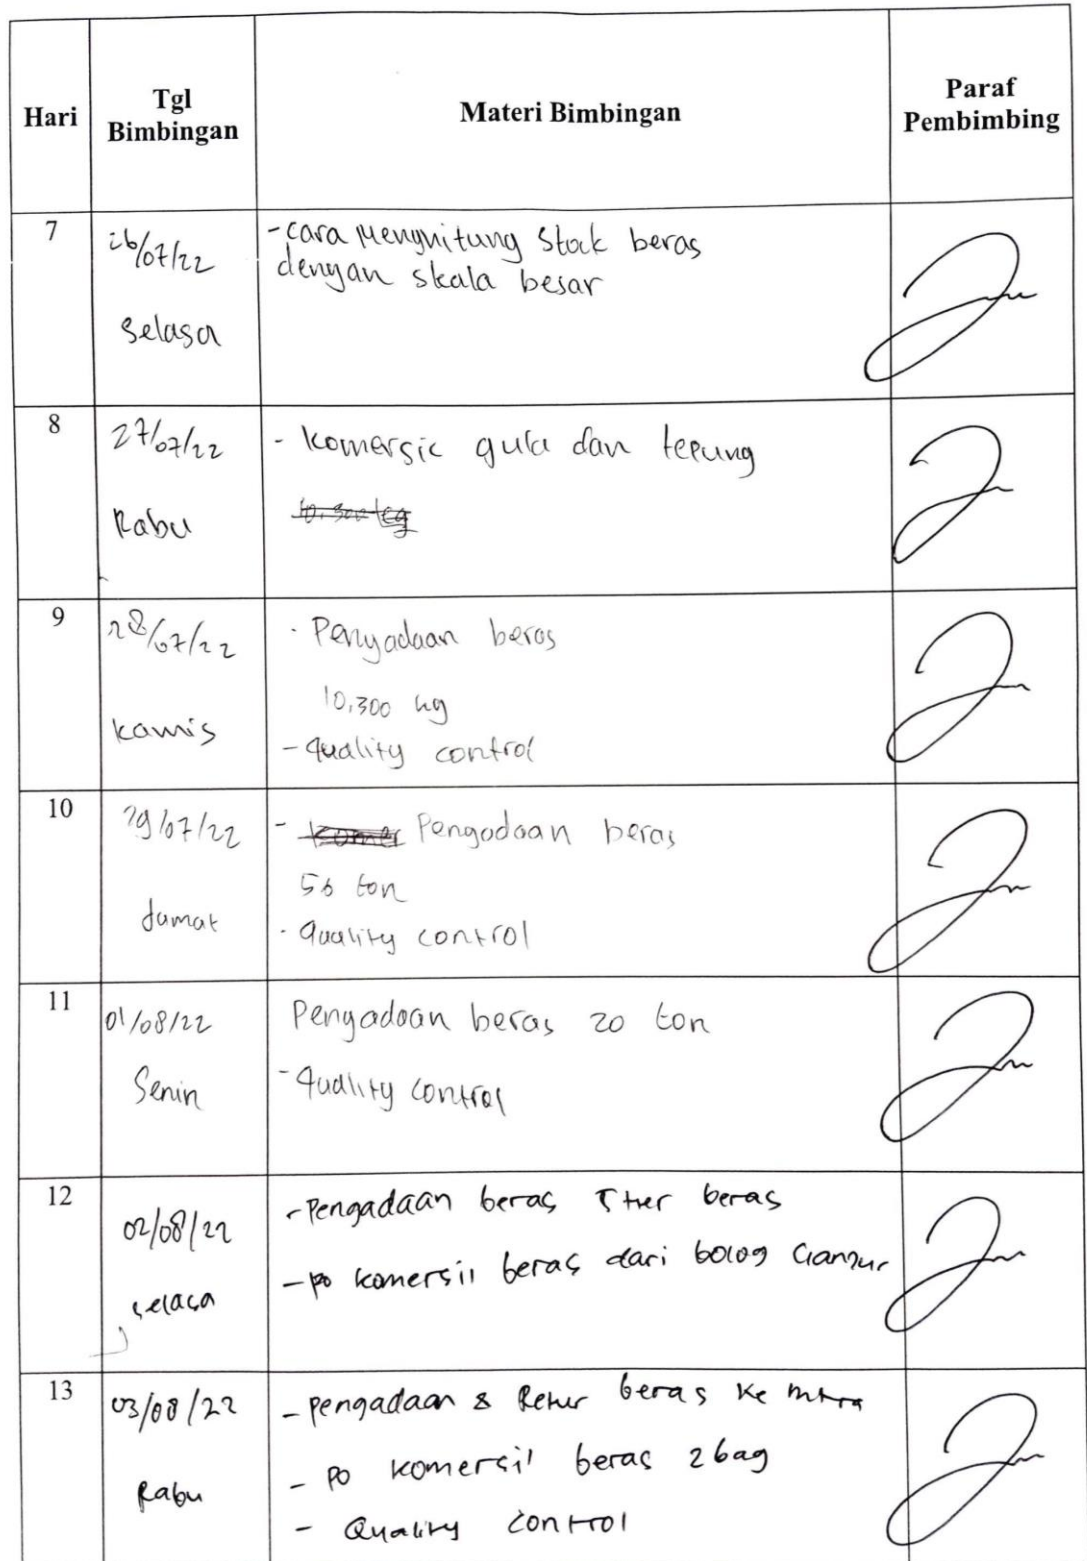 Hari
Tgl
Bimbingan
Materi Bimbingan
Paraf
Pembimbing
7
26/07/22
Selasa
- cara Menghitung Stock beras
dengan skala besar
8
27/07/22
Rabu
- komersil gula dan tepung
9
28/07/22
kamis
- Pengadaan beras
10,300 kg
- Quality control
10
29/07/22
Jumat
- Pengadaan beras
ton
- Quality control
11
01/08/22
Senin
Pengadaan beras 20 ton
- Quality control
12
02/08/22
selasa
- Pengadaan beras beras
- po komersil beras dari bolog Cianjur
13
03/08/22
Rabu
- pengadaan & Retur beras ke mitra
- po komersil beras
- Quality control